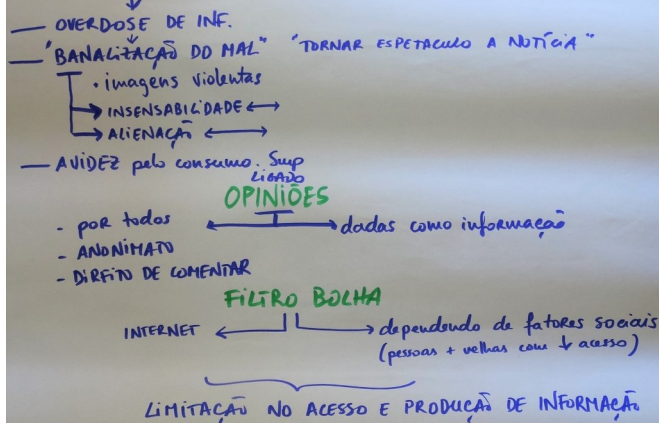 — OVERDOSE DE INF.
— "BANALIZAÇÃO DO MAL" "TORNAR ESPETACULO A NOTÍCIA"
• imagens violentas
→ INSENSABILIDADE ↔
→ ALIENAÇÃO ↔
— AVIDEZ pelo consumo. Simp
LIGADO
OPINIÕES
- por todos ↔ dadas como informação
- ANONIMATO
- DIREITO DE COMENTAR
FILTRO BOLHA
INTERNET ← → dependendo de fatores sociais
(pessoas + velhas com ↓ acesso)
LIMITAÇÃO NO ACESSO E PRODUÇÃO DE INFORMAÇÃO